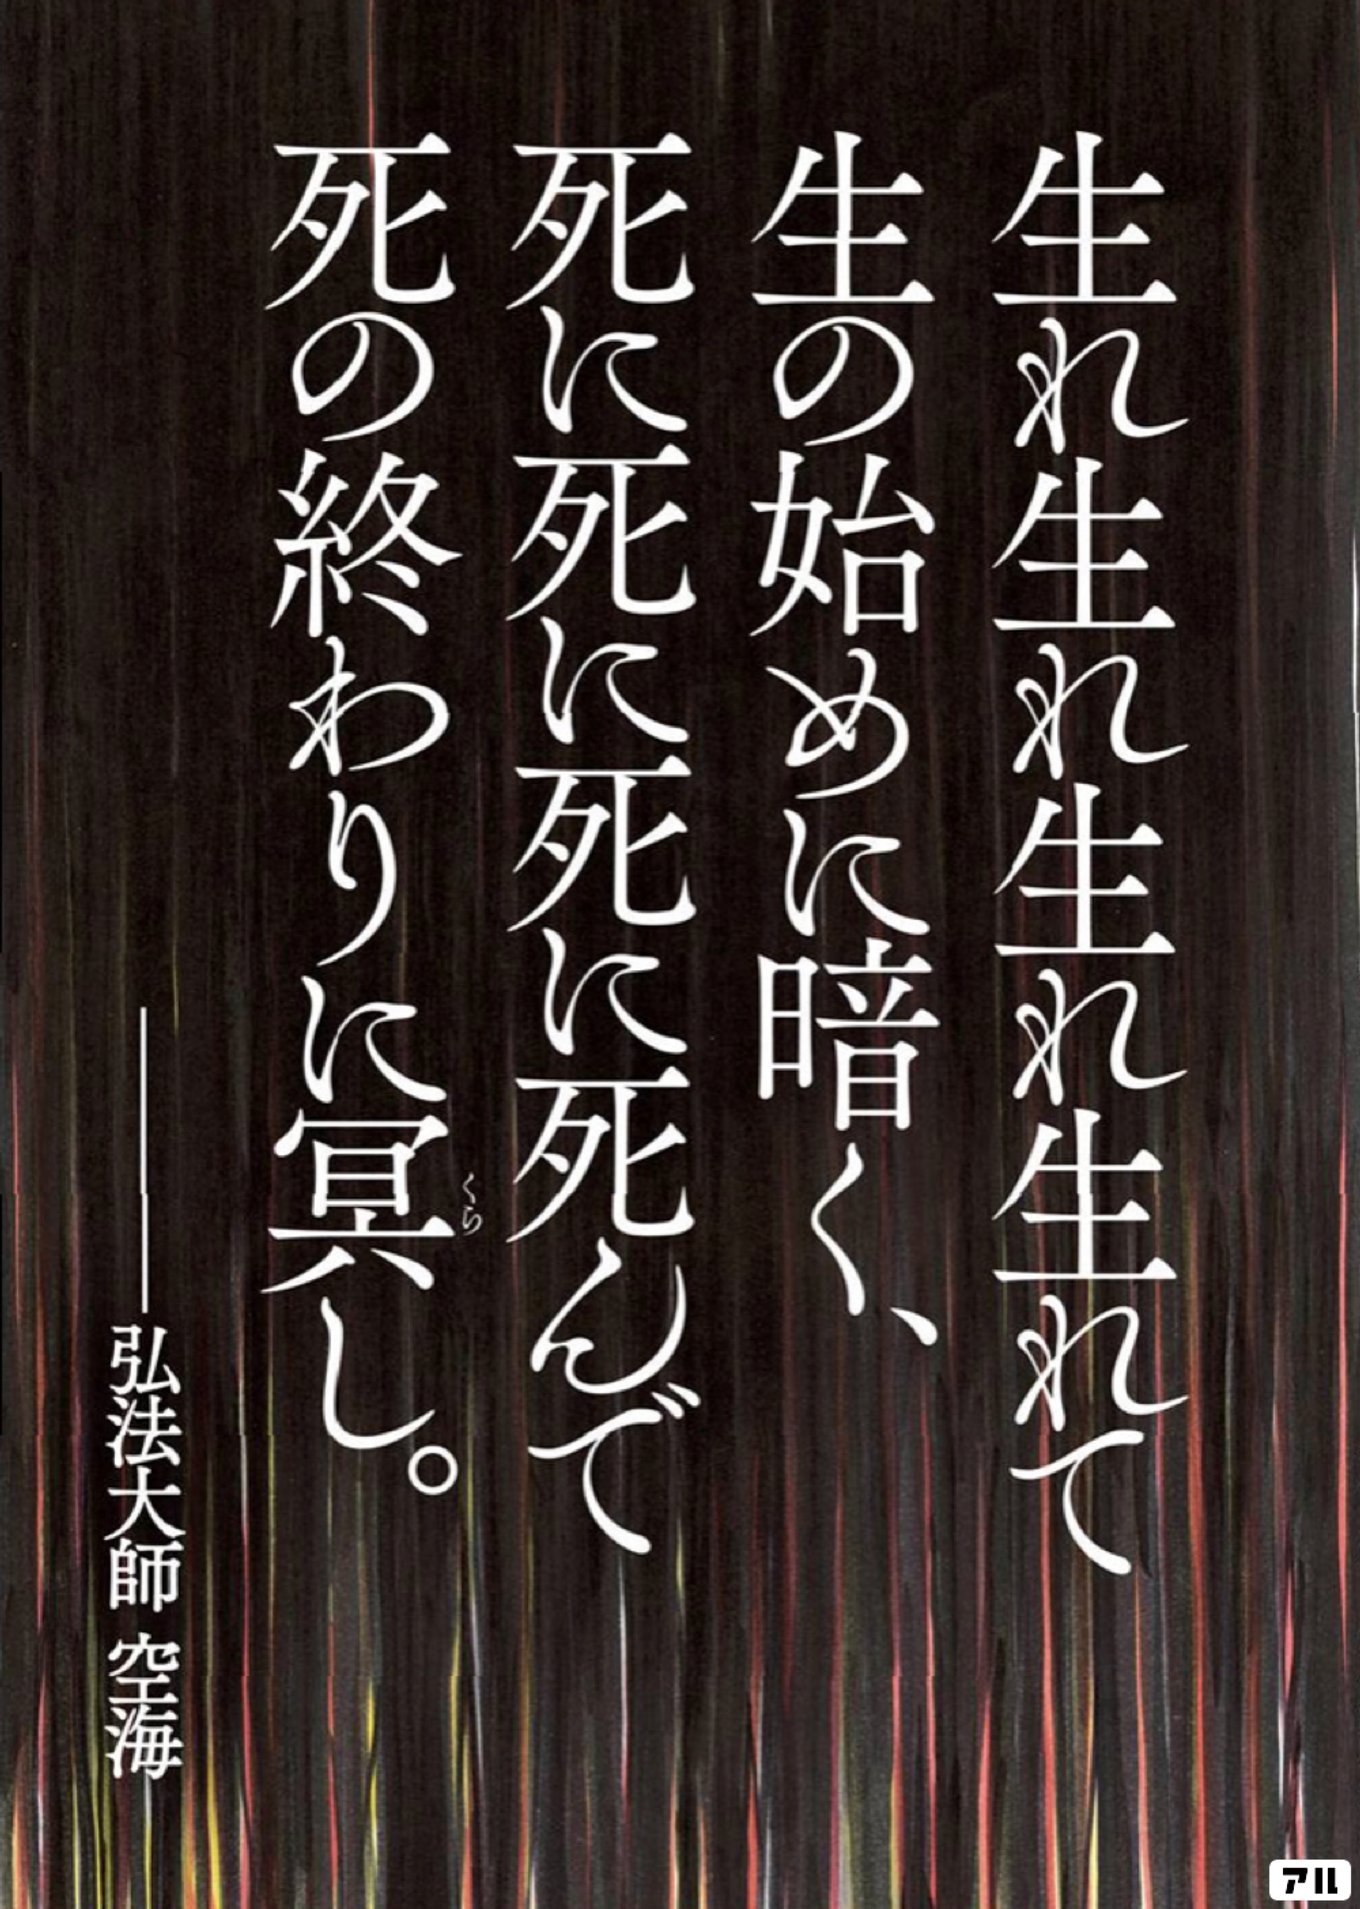 生れ生れ生れ生れて
生の始めに暗く、
死に死に死に死んで
死の終わりに冥し。
くら
——弘法大師 空海
アル